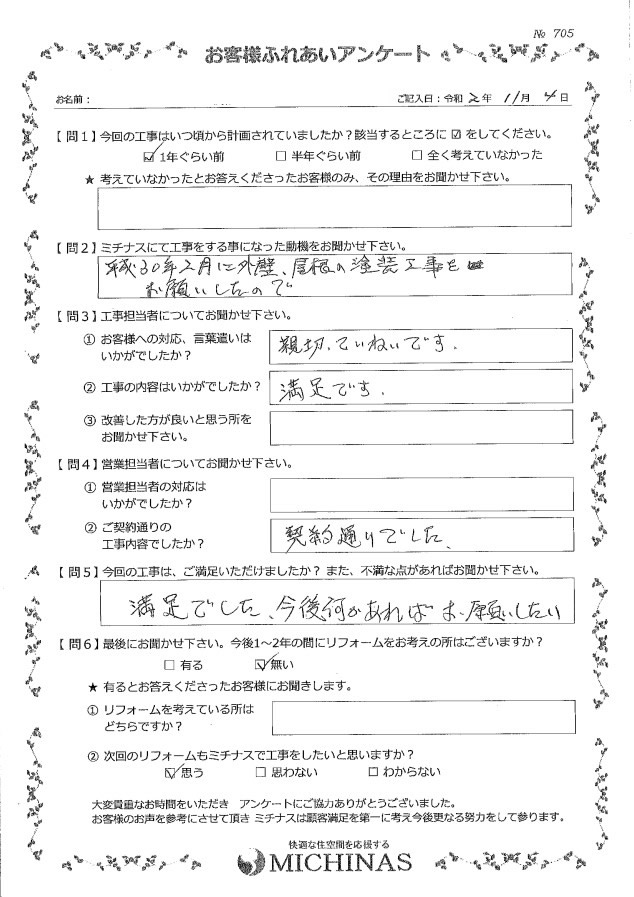 № 705
お客様ふれあいアンケート
お名前：
ご記入日：令和 2 年 11 月 4 日
【問１】今回の工事はいつ頃から計画されていましたか？該当するところに ☑ をしてください。
☑ 1年ぐらい前 □ 半年ぐらい前 □ 全く考えていなかった
★ 考えていなかったとお答えくださったお客様のみ、その理由をお聞かせ下さい。
【問２】ミチナスにて工事をする事になった動機をお聞かせ下さい。
平成30年2月に外壁、屋根の塗装工事を
お願いしたので
【問３】工事担当者についてお聞かせ下さい。
① お客様への対応、言葉遣いは
いかがでしたか？
親切、ていねいです.
② 工事の内容はいかがでしたか？
満足です.
③ 改善した方が良いと思う所を
お聞かせ下さい。
【問４】営業担当者についてお聞かせ下さい。
① 営業担当者の対応は
いかがでしたか？
② ご契約通りの
工事内容でしたか？
契約通りでした、
【問５】今回の工事は、ご満足いただけましたか？ また、不満な点があればお聞かせ下さい。
満足でした、今後何かあればお願いしたい
【問６】最後にお聞かせ下さい。今後1～2年の間にリフォームをお考えの所はございますか？
□ 有る ☑ 無い
★ 有るとお答えくださったお客様にお聞きします。
① リフォームを考えている所は
どちらですか？
② 次回のリフォームもミチナスで工事をしたいと思いますか？
☑ 思う □ 思わない □ わからない
大変貴重なお時間をいただき アンケートにご協力ありがとうございました。
お客様のお声を参考にさせて頂き ミチナスは顧客満足を第一に考え今後更なる努力をして参ります。
快適な住空間を応援する
MICHINAS